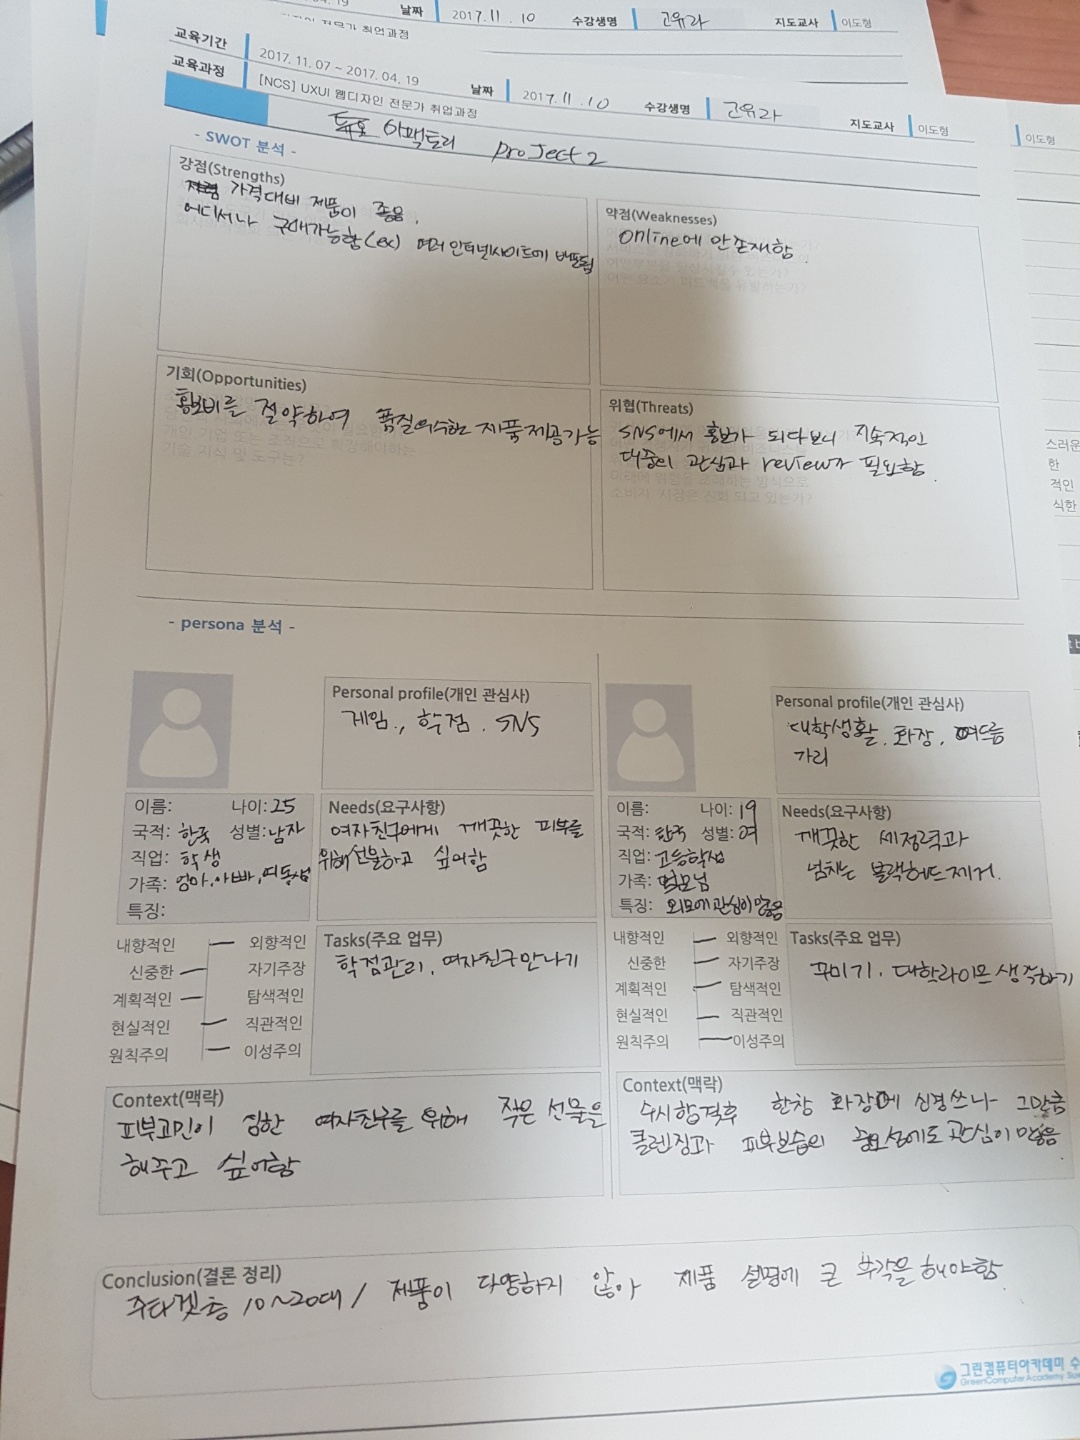 04. 19
날짜
2017.11.10
수강생명
고유라
지도교사
이도형
교육기간
2017. 11. 07 ~ 2017. 04. 19
교육과정
[NCS] UXUI 웹디자인 전문가 취업과정
날짜
2017.11.10
수강생명
고유라
지도교사
이도형
이도형
아팩토리 project 2
- SWOT 분석 -
강점(Strengths)
가격대비 제품이 좋음.
어디서나 구매가능함(ex) 여러 인터넷사이트에 배포됨
약점(Weaknesses)
online에 만존재함.
기회(Opportunities)
홍보비를 절약하여 품질의우수한 제품제공가능
개인 기업 또는 조직으로
기술 지식 및 도구는?
위협(Threats)
SNS에서 홍보가 되다보니 지속적인
대중의 관심과 review가 필요함.
소비자 시장은 진화 되고 있는가?
스러운
한
적인
식한
- persona 분석 -
Personal profile(개인 관심사)
게임., 학점. SNS
이름: 나이: 25
국적: 한국 성별: 남자
직업: 학생
가족: 엄마.아빠.여동생
특징:
Needs(요구사항)
여자친구에게 깨끗한 피부를
위해 선물하고 싶어함
내향적인 외향적인
신중한 자기주장
계획적인 탐색적인
현실적인 직관적인
원칙주의 이성주의
Tasks(주요 업무)
학점관리, 여자친구만나기
Context(맥락)
피부고민이 심한 여자친구를 위해 작은 선물을
해주고 싶어함
Personal profile(개인 관심사)
대학생활. 화장. 여드름
가리
이름: 나이: 19
국적: 한국 성별: 여
직업: 고등학생
가족: 부모님
특징: 외모에 관심이많음
Needs(요구사항)
깨끗한 세정력과
넘치는 블랙헤드제거.
내향적인 외향적인
신중한 자기주장
계획적인 탐색적인
현실적인 직관적인
원칙주의 이성주의
Tasks(주요 업무)
꾸미기. 대학라이프 생각하기
Context(맥락)
수시합격후 한창 화장에 신경쓰나 그만큼
클렌징과 피부보습의 중요성에도 관심이 많음
Conclusion(결론 정리)
주타겟층 10~20대 / 제품이 다양하지 않아 제품 설명에 큰 부각을 해야함.
그린컴퓨터아카데미 수
GreenComputer Academy